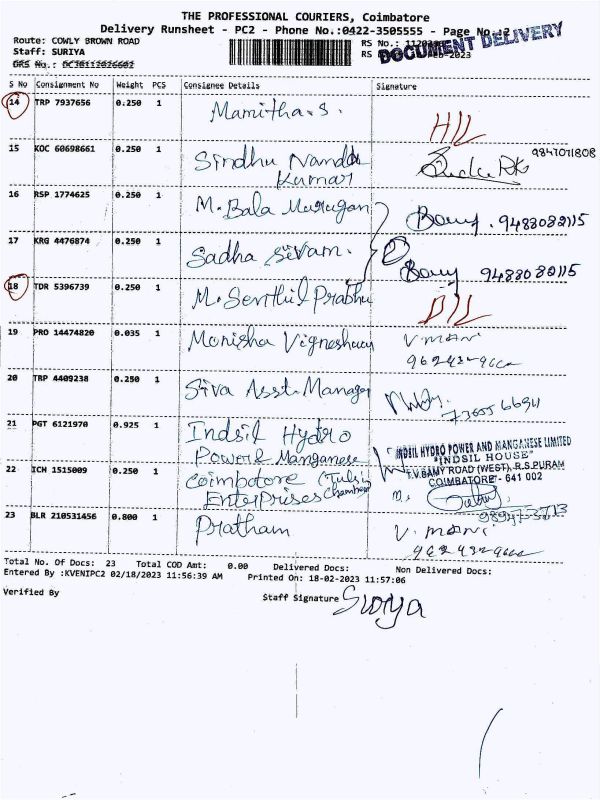 THE PROFESSIONAL COURIERS, Coimbatore
Delivery Runsheet - PC2 - Phone No.:0422-3505555 - Page No.:2
DOCUMENT DELIVERY
Route: COWLY BROWN ROAD
RS No.:
Staff: SURIYA
RS
DRS No.:
S No Consignment No Weight PCS Consignee Details Signature
14 TRP 7937656 0.250 1 Mamitha.s.
15 KOC 60698661 0.250 1 Sindhu Nanda 9847071808
Kumar
16 RSP 1774625 0.250 1 M. Bala Murugan 9488082115
17 KRG 4476874 0.250 1 Sadha Sivam. 9488082115
18 TDR 5396739 0.250 1 M. Senthil Prabhu
19 PRO 14474820 0.035 1 Monisha V. MANI
20 TRP 4409238 0.250 1 Siva Asst. Manager
21 PGT 6121970 0.925 1 Indsil Hydro
Power & Manganese
INDSIL HYDRO POWER AND MANGANESE LIMITED
"INDSIL HOUSE"
T.V.SAMY ROAD (WEST), R.S.PURAM
COIMBATORE - 641 002
22 ICH 1515009 0.250 1 Coimbatore (Tulsi
Enterprises Chamber
23 BLR 210531456 0.800 1 Pratham V. MANI
Total No. Of Docs: 23 Total COD Amt: 0.00 Delivered Docs: Non Delivered Docs:
Entered By :KVENIPC2 02/18/2023 11:56:39 AM Printed On: 18-02-2023 11:57:06
Verified By Staff Signature Suriya